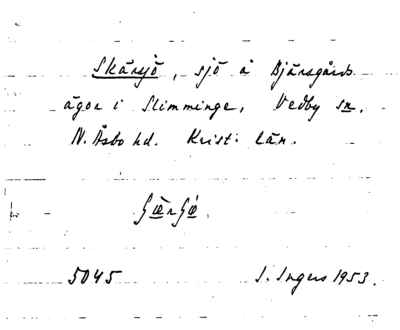 Skärsjö, sjö å Bjärsgårds
ägor i Slimminge, Vedby sn.
N. Åsbo hd. Krist: län.
5045 I. Ingers 1953.